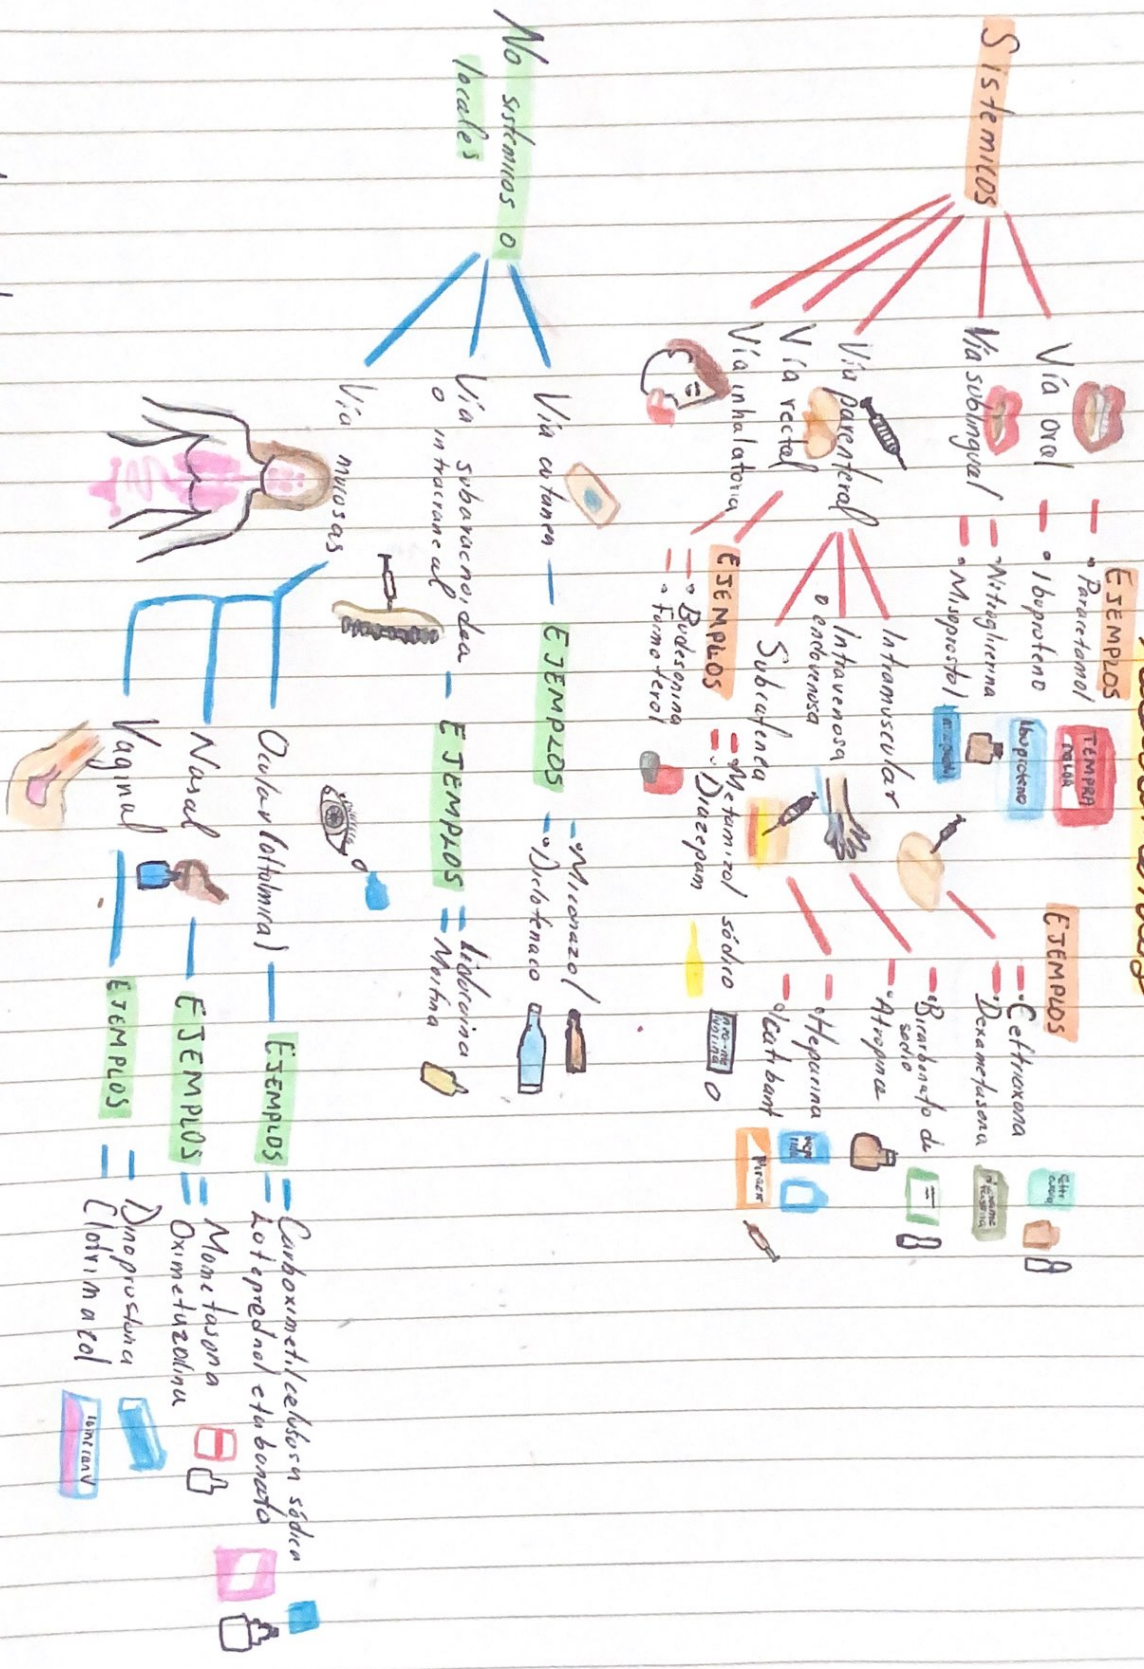 Sistemicos
Vía oral
EJEMPLOS
• Paracetamol
• Ibuproteno
TEMPRA
Ibuproteno
Vía sublingual
• Nitroglicerina
• Misoprostol
Vía parenteral
Intramuscular
EJEMPLOS
• Ceftriaxona
• Dexametasona
Intravenosa
o endovenosa
• Bicarbonato de
sodio
• Atropina
Subcutenea
• Heparina
• Icatibant
Vía rectal
• Metamizol sódico
• Diazepan
Vía inhalatoria
EJEMPLOS
• Budesonina
• Formoterol
No sistémicos o
locales
Vía cutanea
EJEMPLOS
• Miconazol
• Diclofenaco
Vía subaracnoidea
o intracraneal
EJEMPLOS
Lidocaina
Morfina
Vía mucosas
Ocular (oftalmica)
EJEMPLOS
Carboximetilcelulosa sódica
Loteprednol etabonato
Nasal
EJEMPLOS
Mometasona
Oximetazolina
Vaginal
EJEMPLOS
Dinoprostona
Clotrimazol